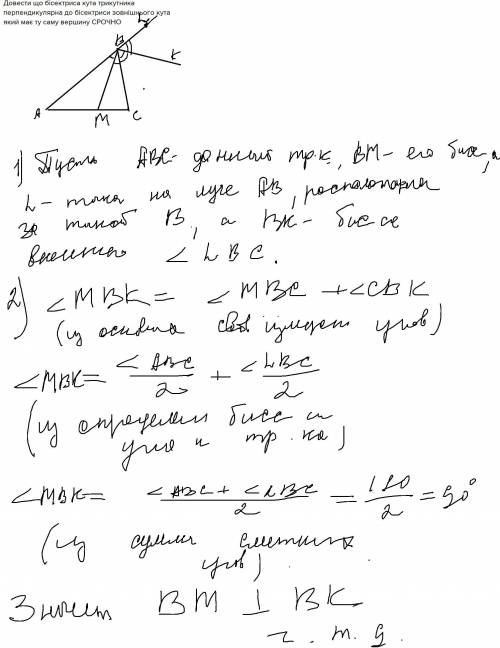 Довести що бісектриса кута трикутника
перпендикулярна до бісектриси зовнішнього кута
який має ту саму вершину СРОЧНО
L
B
K
A
M
C
1) Пусть ABC - данный тр.к, BM - его бисс, а
L - точка на луче AB, расположен
за точкой B, а BK - бисс
внешнего ∠LBC.
2) ∠MBK = ∠MBC + ∠CBK
(из основна свой измерен углов)
∠MBK = ∠ABC/2 + ∠LBC/2
(из определен бисс
угла и тр.ка)
∠MBK = (∠ABC + ∠LBC)/2 = 180/2 = 90°
(из суммы смежных
углов)
Значит BM ⊥ BK
ч.т.д.